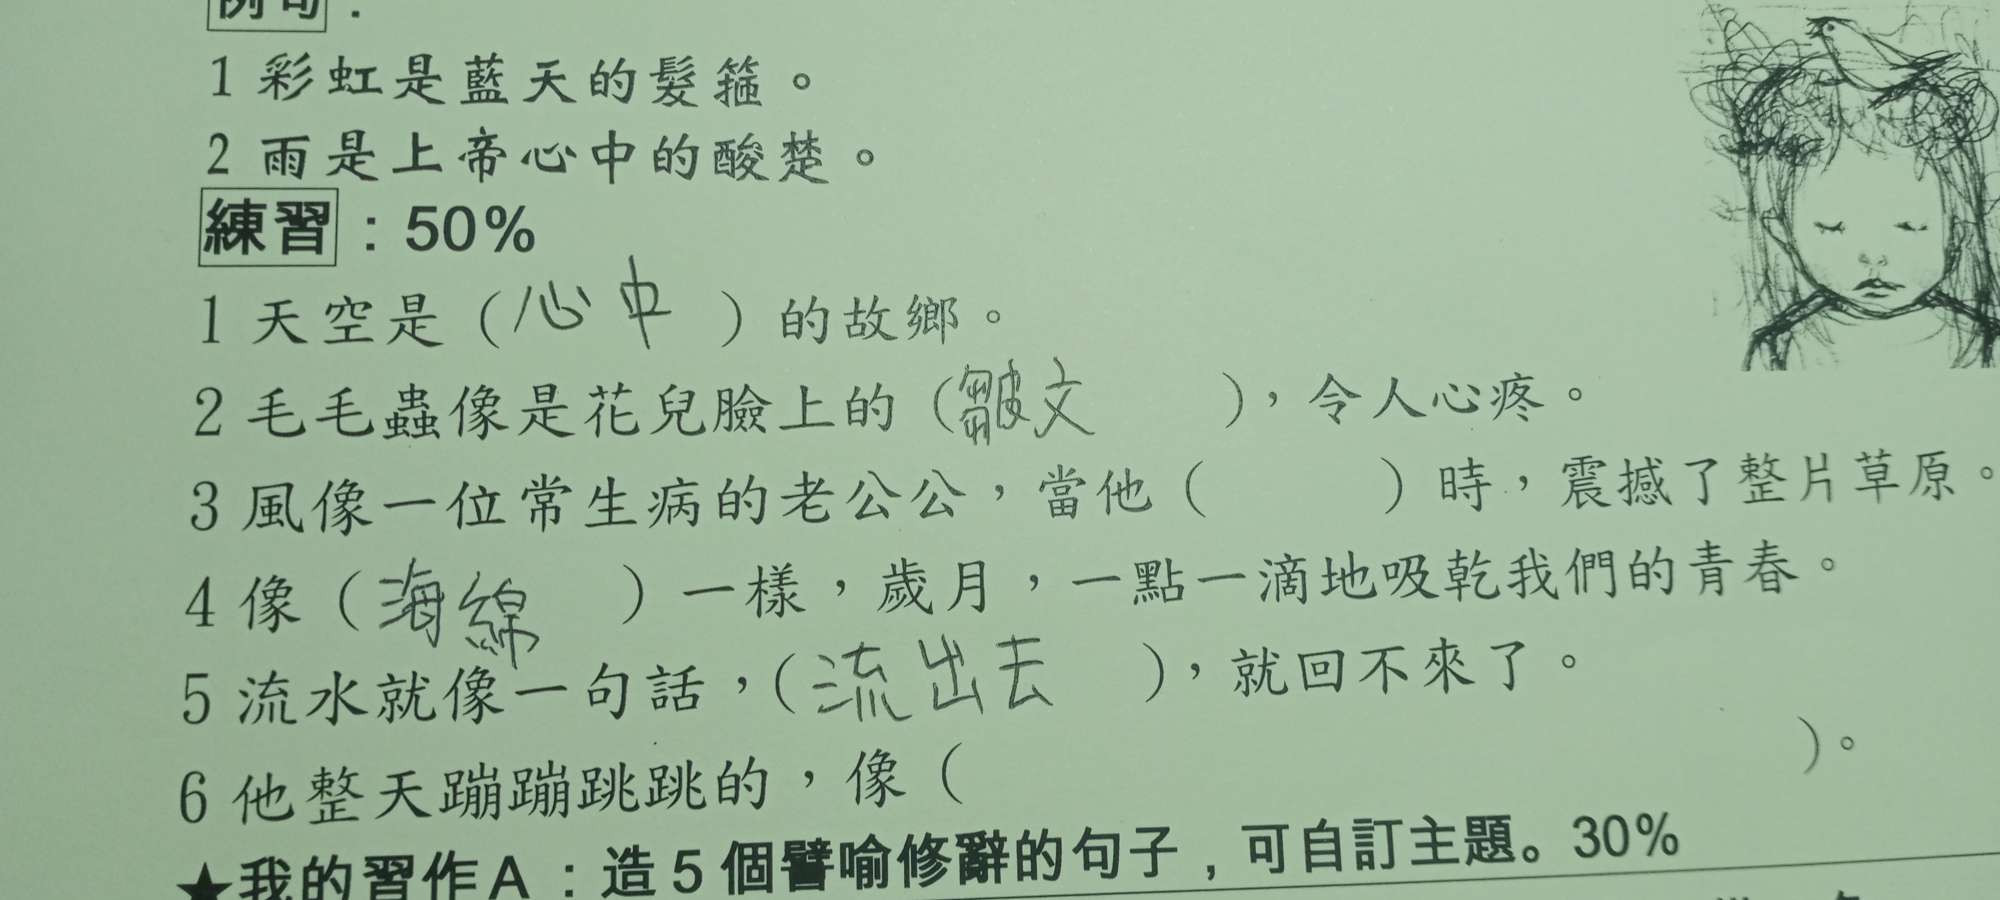 例句：
1 彩虹是藍天的髮箍。
2 雨是上帝心中的酸楚。
練習：50%
1 天空是（心中）的故鄉。
2 毛毛蟲像是花兒臉上的（皺文），令人心疼。
3 風像一位常生病的老公公，當他（ ）時，震撼了整片草原。
4 像（海綿）一樣，歲月，一點一滴地吸乾我們的青春。
5 流水就像一句話，（流出去），就回不來了。
6 他整天蹦蹦跳跳的，像（ ）。
★我的習作A：造5個譬喻修辭的句子，可自訂主題。30%